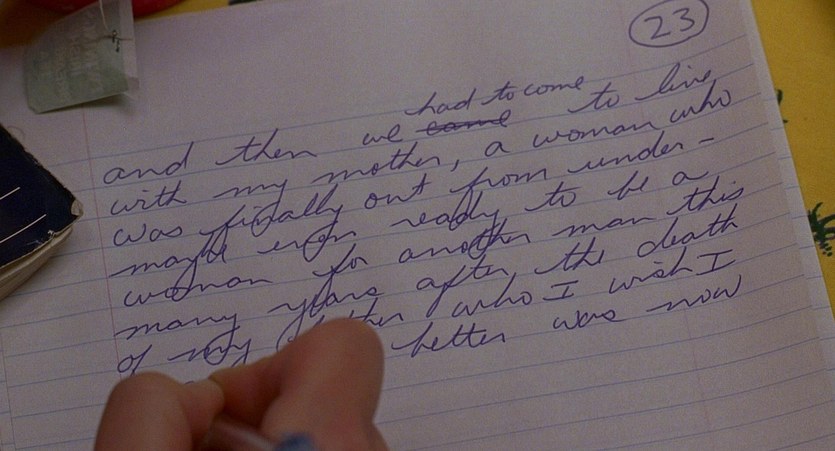 23
had to come
and then we came to live
with my mother, a woman who
was finally out from under -
maybe even ready to be a
woman for another man this
many years after the death
of my father who I wish I
better was now